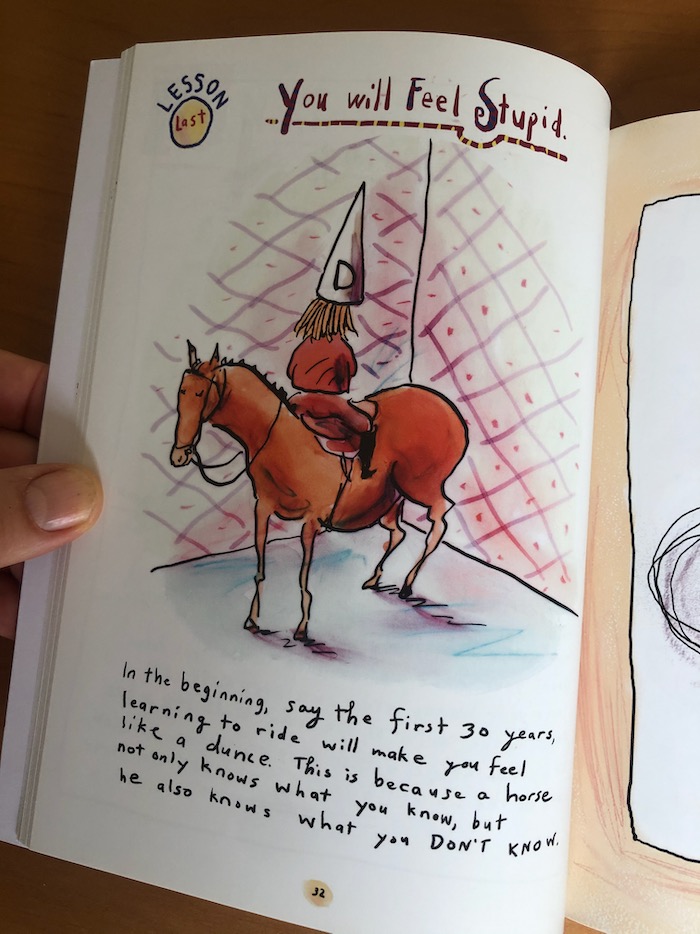 LESSON
Last
You will Feel Stupid.
D
In the beginning, say the first 30 years,
learning to ride will make you feel
like a dunce. This is because a horse
not only knows what you know, but
he also knows what you DON'T KNOW.
32